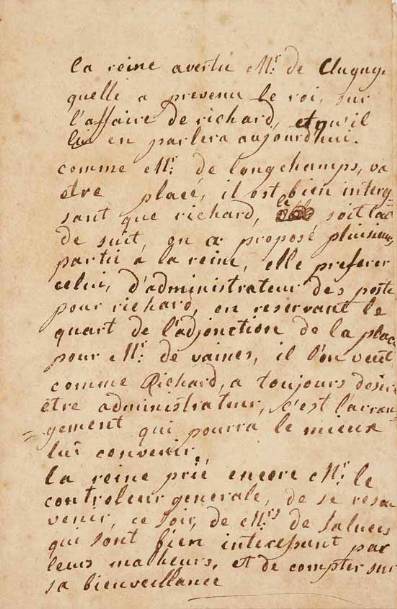 la reine avertie Mr. de Clugny
quelle a prevenu le roi, sur
l'affaire de richard, et qu'il
lui en parlera aujourdhui.
comme Mr. de longchamps, va
etre placé, il est bien interes
sant que richard, le soit tout
de suit, on a proposé plusieurs
partie a la reine, elle preferer
celui, d'administrateur des poste
pour richard, en reservant le
quart de l'adjonction de la place
pour Mr. de vaines, il l'on veut
comme Richard, a toujours desire
être administrateur, c'est l'arran
gement qui pourra le mieux
lui convenir.
la reine prié encore Mr. le
controleur generale, de se resou
venir, ce soir, de Mrs. de saluces
qui sont bien interessant par
leurs malheurs, et de compter sur
sa bienveillance